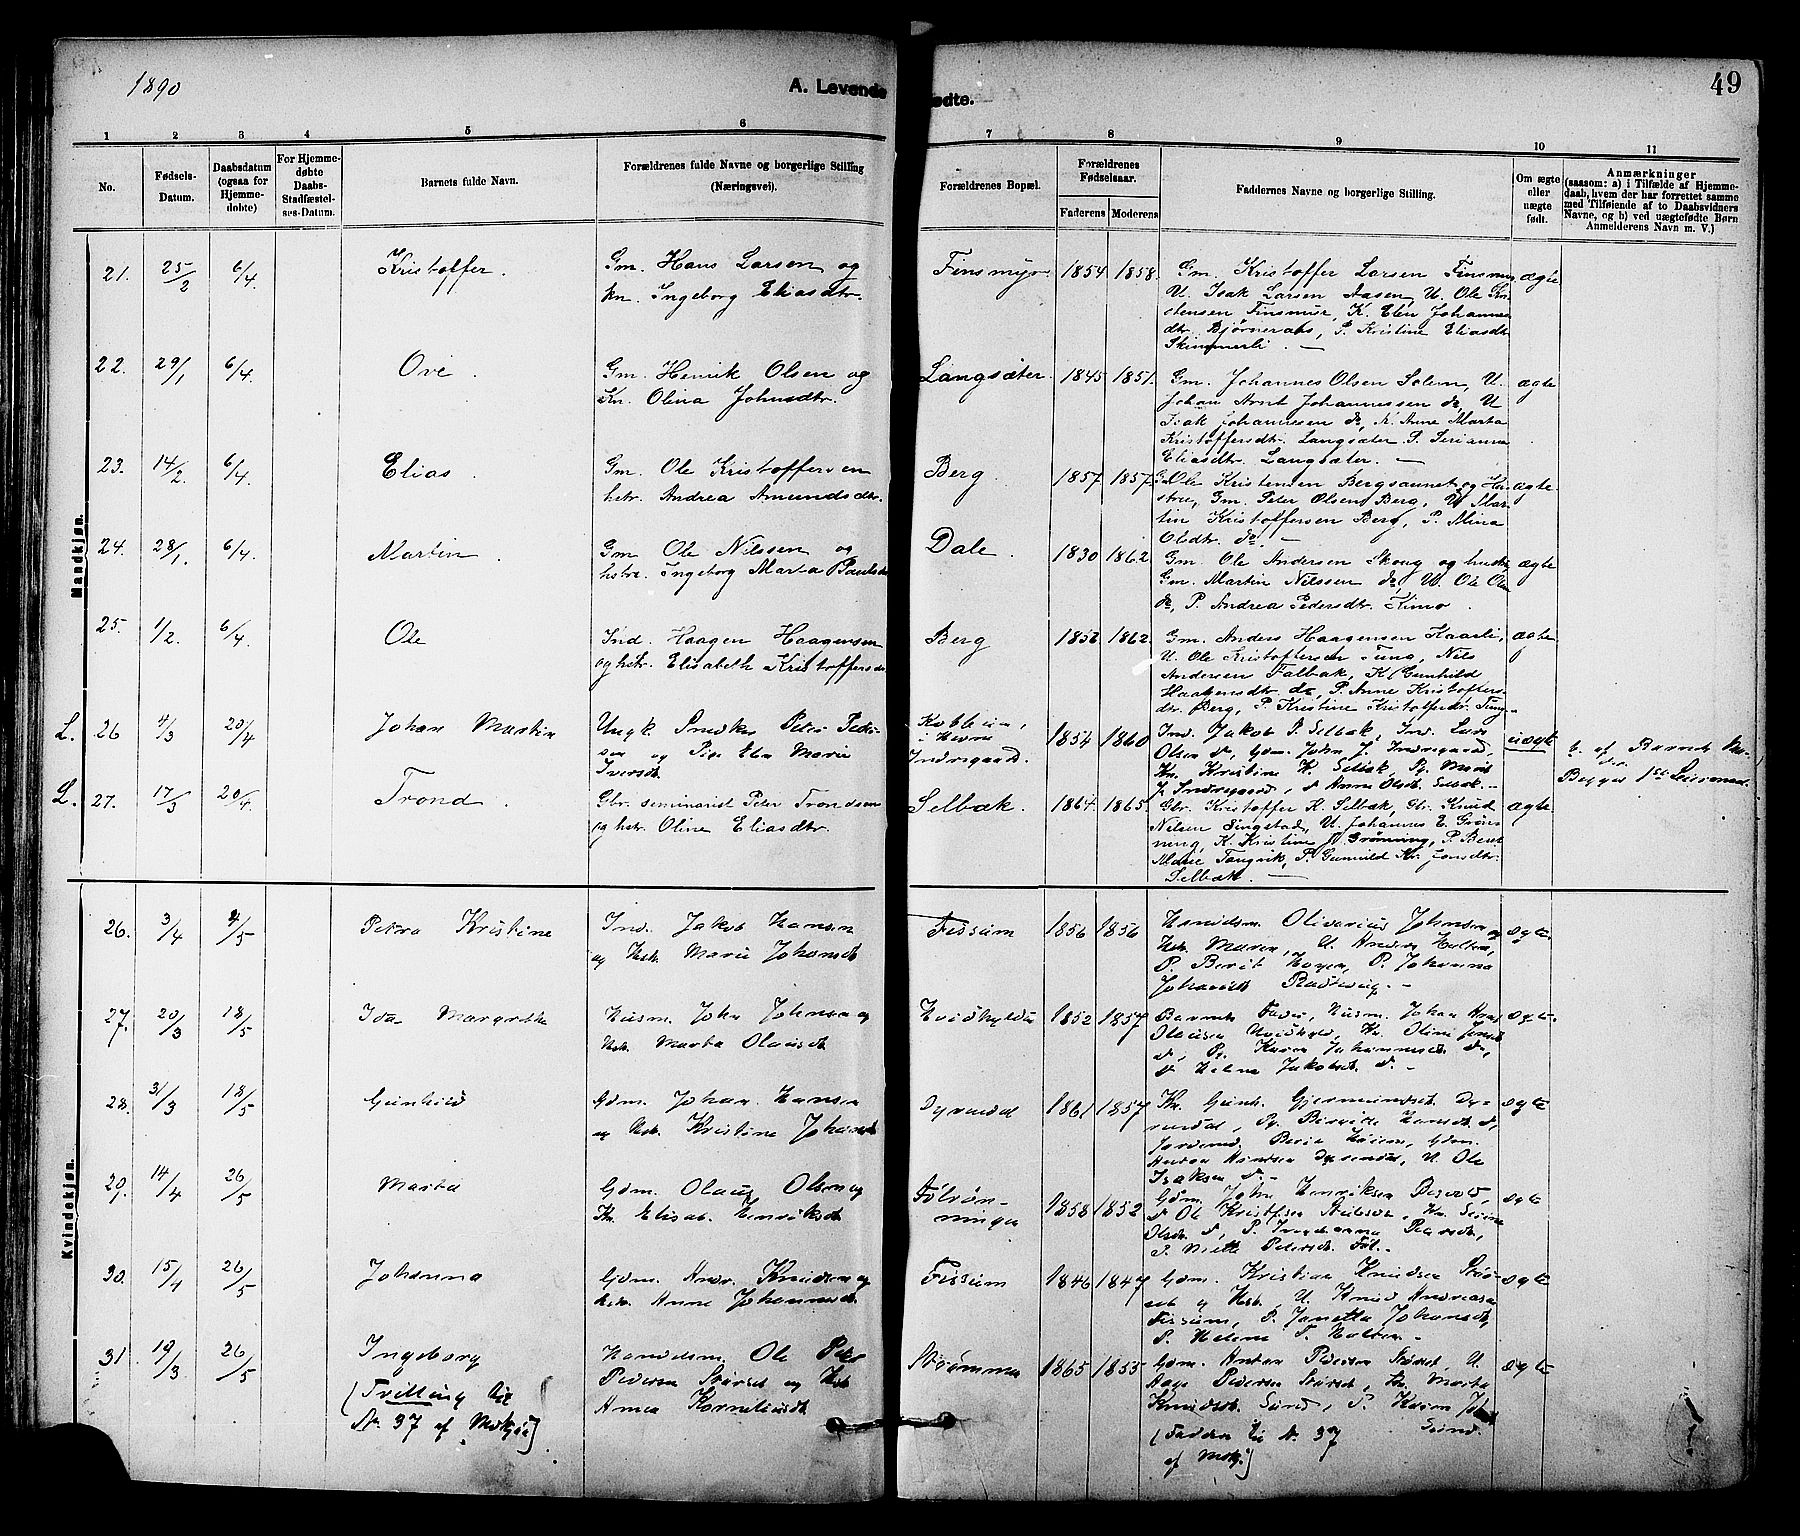 1890
A. Levende
fødte.
49
1 2 3 4 5 6 7 8 9 10 11
No.
Fødsels-
Datum.
Daabsdatum
(ogsaa for
Hjemme-
døbte)
For Hjemme-
døbte
Daabs-
Stadfæstel-
ses-Datum.
Barnets fulde Navn.
Forældrenes fulde Navne og borgerlige Stilling
(Næringsvei).
Forældrenes Bopæl.
Forældrenes
Fødselsaar.
Faderens Moderens
Faddernes Navne og borgerlige Stilling.
Om ægte
eller
uægte
født.
Anmærkninger
(saasom: a) i Tilfælde af Hjemme-
daab, hvem der har forrettet samme
med Tilføiende af to Daabsvidners
Navne, og b) ved uægtefødte Børn
Anmelderens Navn m. V.)
Mandkjøn.
21. 25/2 6/4. Kristoffer. Gm. Hans Larsen og
kn. Ingeborg Eliasdtr.
Finsmyr 1854 1858. Gm. Kristoffer Larsen
U. Isak Larsen Aasen, U. Ole Kri
stensen Finsmyr, K. Elen Johannes
dtr. Bjørneraas, P. Kristine Eliasdtr.
Skimmerli. —
ægte
22. 29/1 6/4. Ove. Gm. Henrik Olsen og
Kn. Olina Johnsdtr.
Langsæter 1845 1851. Gm. Johannes Olsen Solem, U.
Johan Arnt Johannessen do, U
Isak Johannessen do, K. Anne Marta
Kristoffersdtr. Langsæter P. Serianna
Eliasdtr. Langsæter. —
ægte
23. 14/2. 6/4. Elias. Gm. Ole Kristoffersen
hstr. Andrea Amundsdtr.
Berg 1857 1857 Ole Kristensen Bergsaunet og Hu
stru, Gm. Peter Olsen Berg, U Mar
tin Kristoffersen Berg, P. Mina
Olsdtr. do —
ægte
24. 28/1. 6/4. Martin Gm. Ole Nilssen og
hstru. Ingeborg Marta
Dale. 1830 1862 Gm. Ole Andersen Skoug og hustr
Gm. Martin Nilssen do, U. Ole
do, P. Andrea Pedersdtr. Fimo.
ægte
25. 1/2. 6/4. Ole Ind. Haagen Haagensen
og hstr. Elisabeth Kristoffersdtr
Berg 1852 1862. Gm. Anders Haagensen Kaarli,
U. Ole Kristoffersen, Nils
Andersen Falbak, K. Gunhild
Haagensdtr. do, P. Anne Kristoffers
dtr. Berg, P. Kristine Kristoffersdr.
ægte
L. 26 4/3 20/4 Johan Martin Ungk. Peter Peder
sen og Pige Marie
Iversdt.
i Hevne
Indergaard 1854 1860 Ind. Jakob P. Selbak, Ind. Lars
Olsen do, Gdm. John J. Indergaard,
Kr. Kristine K. Selbak, Pg. Marit
J. Indergaard, Anne Olsdt. Selbak. —
uægte
b. af Barnets
Begges 1ste Leiermaal
L. 27. 17/3 20/4. Trond. Gbr. seminarist Peter Trondsen
og hstr. Oline Eliasdtr.
Selbæk. 1864. 1865. Gbr. Kristoffer K. Selbæk, Gbr. Knud
Nilsen Singstad, U. Johannes E. Grøn
ning, K. Kristine J. Grønning, P. Berit
Marie Tangvik, P. Gunhild Kr. Jonsdtr.
Selbæk. —
ægte.
Kvindekjøn.
26. 3/4 4/5 Petra Kristine Ind. Jakob Hansen
og Hstr. Marie Johansdt.
Fissum 1856 1856 Olivarius Johnsen og
Hstr. Maren, U. Anders Holten,
P. Berit, P. Johanna
Johansdt —
ægte.
27. 20/3 18/5 Ida Margrethe Husm. John Johnsen og
Hstr. Marta Olausdt
1852 1857 Barnets Fader, Husm. Johan
Olausen, Kr. Oline
do, Pg. Karen Johannesdt. do,
do Helena Jakobsdt. do. —
ægte.
28. 31/3 18/5 Gunhild Gdm. Johan Hansen
og Hstr. Kristine Johansdt
Dyrendal 1861 1857 Kr. Gunh. Gjermundsdt. Dy-
rendal, Pg. Hansdt do,
Dyrendal, U. Ole
Isaksen do —
ægte
29. 14/4 26/5 Marta Gdm. Olaus Olsen og
Kr. Elisab. Henriksdt
Følrøn-
ningen 1858 1852 Gdm. John Henriksen
do Ole Kristofersen
Olsdt. do, P. Pedersdt,
P. Mette Pedersdt. Føl. —
ægte
30. 15/4 26/5 Johanna Gdm. Andr. Knudsen og
Hstr. Anne Johannesdt.
Fissum 1846 1847 Gdm. Kristian Knudsen Strø-
og Hstr. U. Knud Andreasen
Fissum, P. Janetta Johansdt,
P. Helene F. Holten. —
ægte
31. 19/3 26/5 Ingeborg
(Tvilling til
No. 37 af Mdkjøn)
Handelsm. Ole
Pedersen Størset og Hstr
Anna Korneliusdt
Strømmen 1865 1855 Gdm. Anton Pedersen Størset, U.
Pedersen Størset, Kr. Marta
Knudsdt. Sund, P. Karen
Sund.
(Faddere til No. 37
af Mdkj.)
ægte